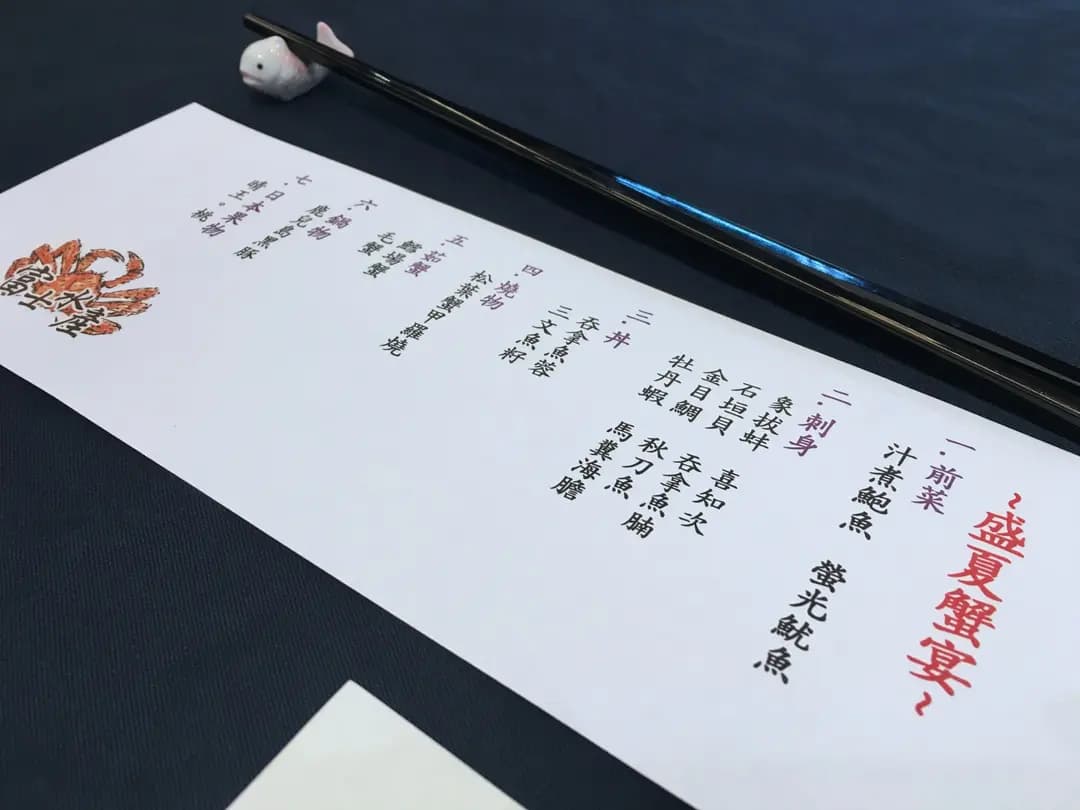 ~盛夏蟹宴~
一.前菜
汁煮鮑魚 螢光魷魚
二.刺身
象拔蚌 喜知次
石垣貝 吞拿魚腩
金目鯛 秋刀魚
牡丹蝦 馬糞海膽
三.丼
吞拿魚蓉
三文魚籽
四.燒物
松葉蟹甲羅燒
五.茹蟹
鱈場蟹
毛蟹
六.鍋物
鹿兒島黑豚
七.日本果物
晴王。桃
富士水產